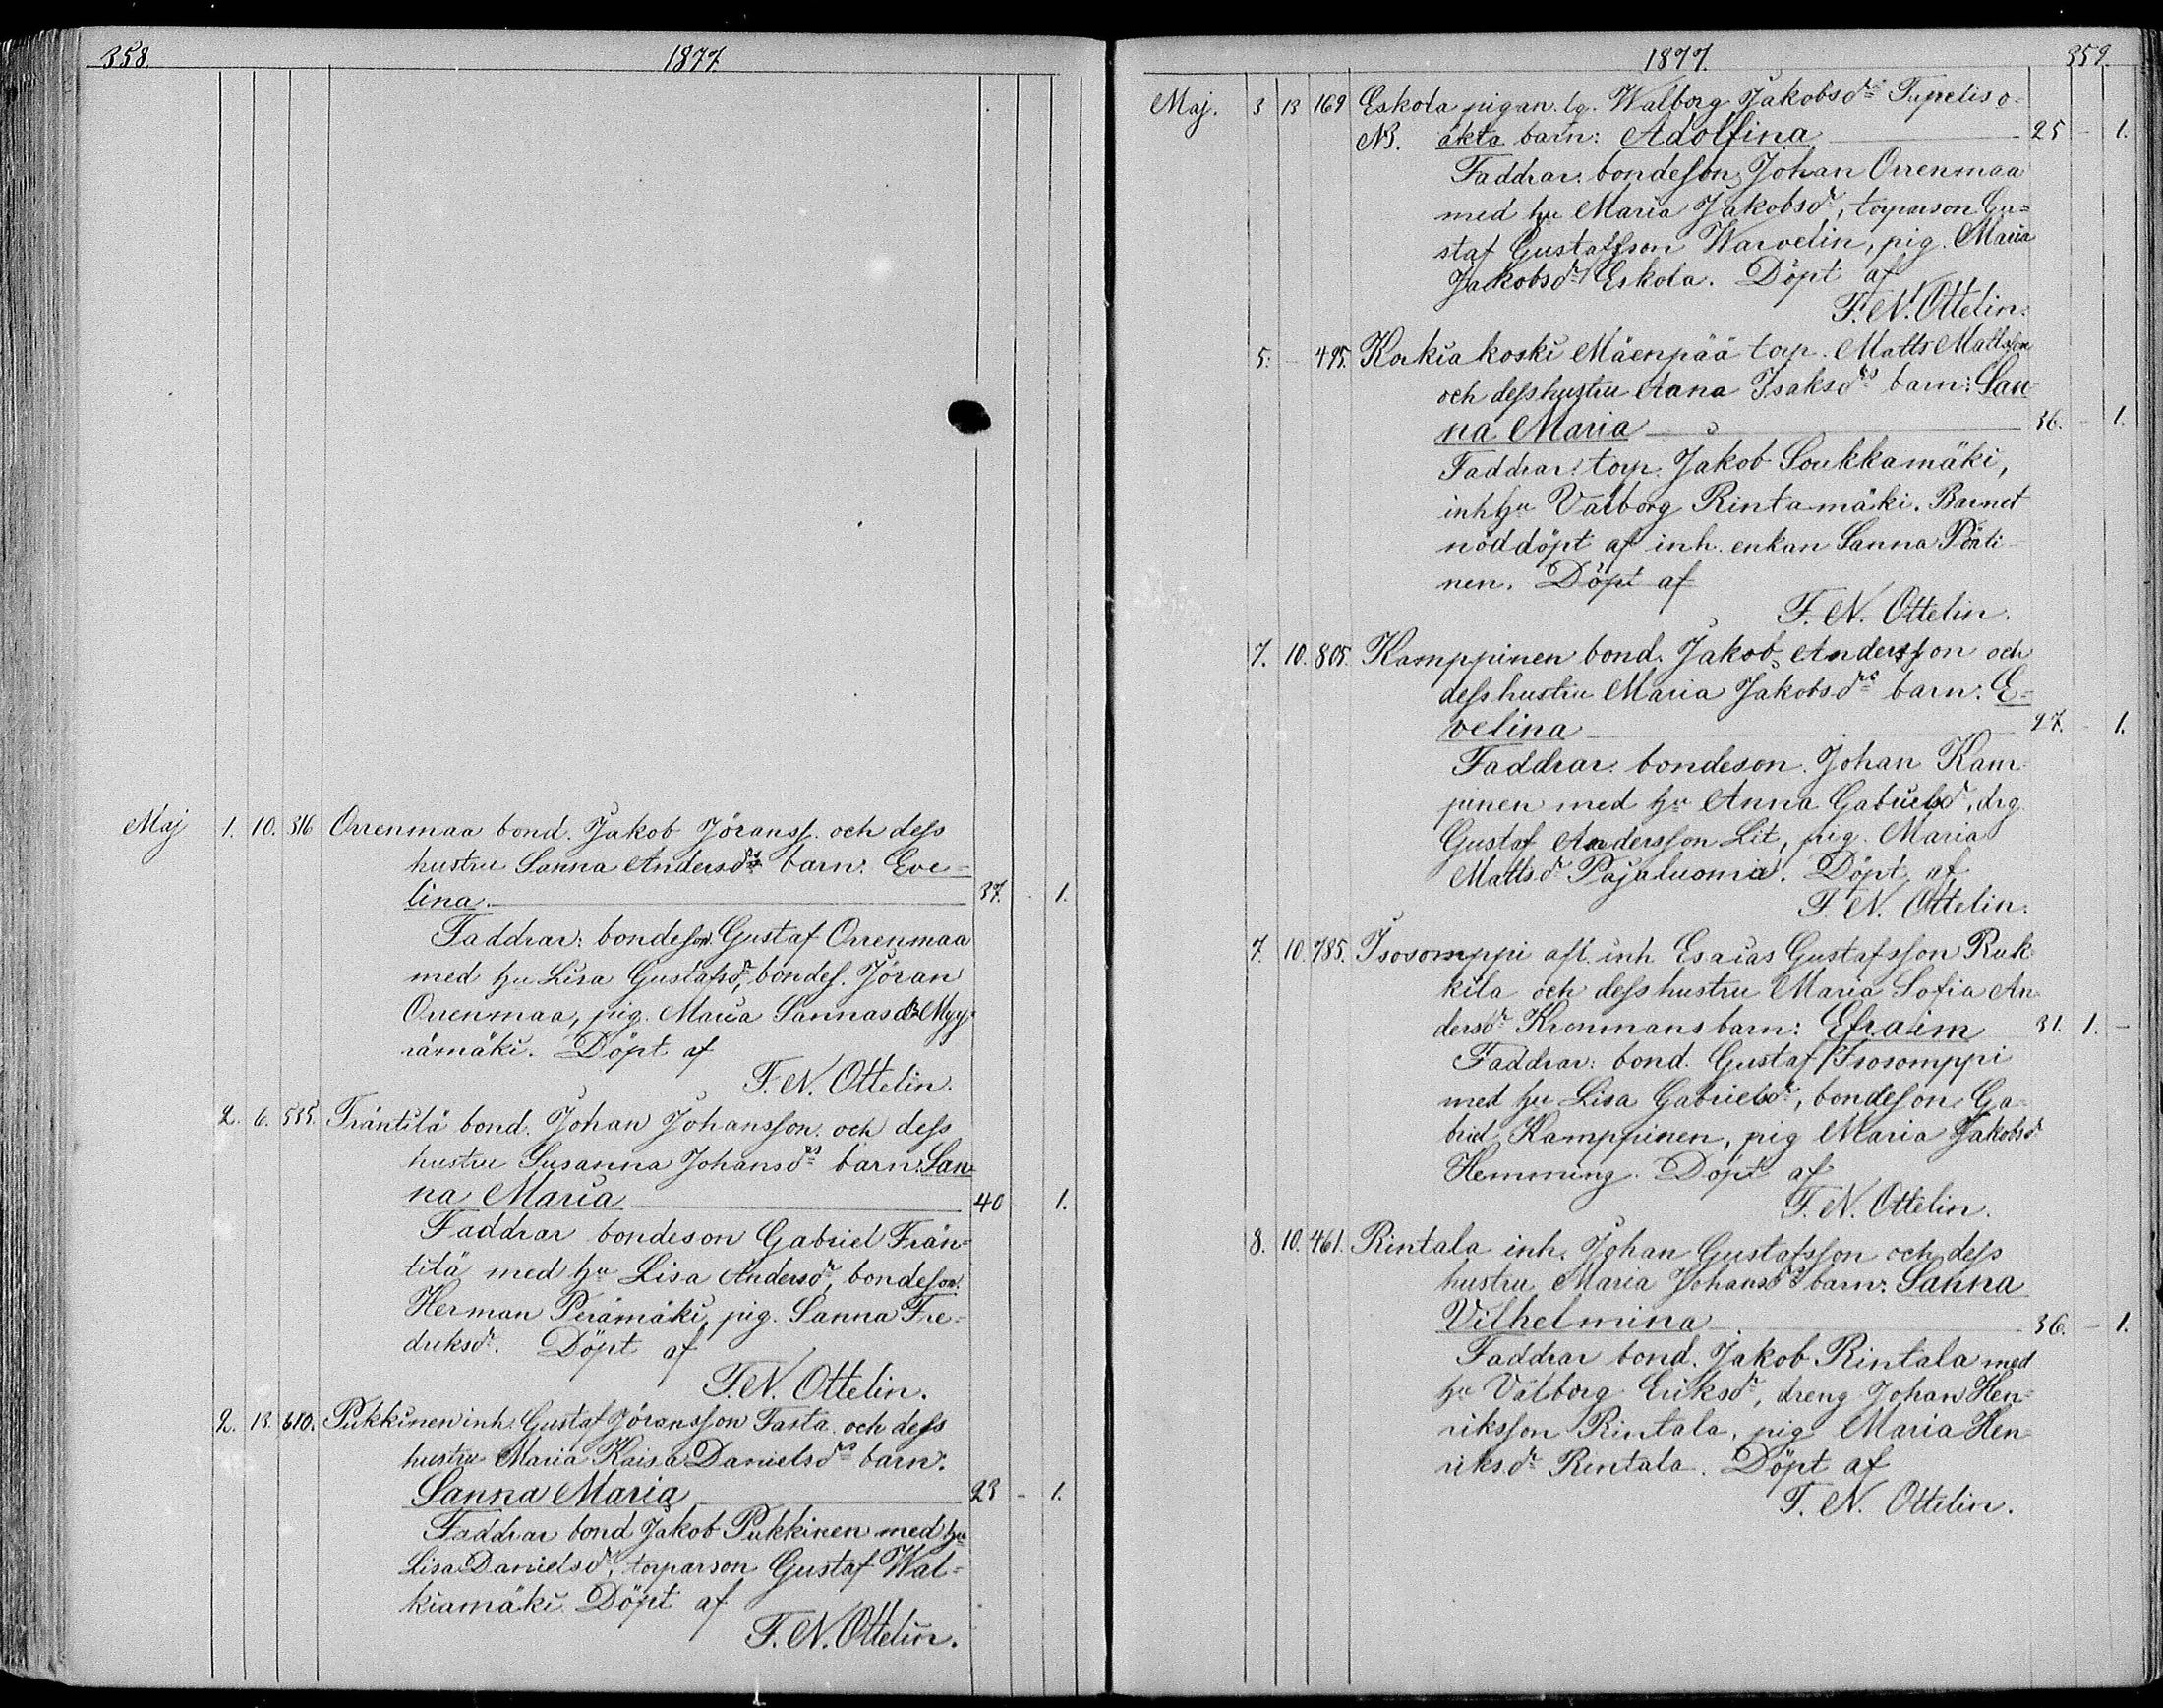 358. 1877.
Maj 1. 10. 316 Orrenmaa bond. Jakob Jöranss. och dess
hustru Sanna Andersdrs barn: Eve=
lina. 37. - 1.
Faddrar: bondeson Gustaf Orrenmaa
med hu Lisa Gustafsdr, bondes. Jöran
Orrenmaa, pig. Maria Sannasdr Myy-
rämäki. Döpt af
F. N. Ottelin.
2. 6. 535. Träntilä bond. Johan Johansson och dess
hustru Susanna Johansdrs barn: San=
na Maria 40 1.
Faddrar bondeson Gabriel Trän=
tilä med hu Lisa Andersdr, bondeson
Herman Perämäki, pig. Sanna Fre=
driksdr. Döpt af
F. N. Ottelin.
2. 13. 610. Pukkinen inh. Gustaf Jöransson Tasta och dess
hustru Maria Kaisa Danielsdrs barn:
Sanna Maria 23 - 1.
Faddrar bond Jakob Pukkinen med hu
Lisa Danielsdr, torparson Gustaf Wal=
kiamäki. Döpt af
F. N. Ottelin.
1877. 359.
Maj. 3 13 169 Eskola pigan lg. Walborg Jakobsdr Tupelis o-
NB. äkta barn: Adolfina 25 - 1.
Faddrar: bondeson Johan Orrenmaa
med hu Maria Jakobsdr, torparson Gu=
staf Gustafsson Warvelin, pig. Maria
Jakobsdr Eskola. Döpt af
F. N. Ottelin.
5. - 495. Korkiakoski Mäenpää torp. Matts Mattsson
och dess hustru Anna Isaksdrs barn: San=
na Maria 36. - 1.
Faddrar: torp. Jakob Loukkamäki,
inh hu Valborg Rintamäki. Barnet
nöddöpt af inh. enkan Sanna
nen. Döpt af
F. N. Ottelin.
7. 10. 805. Kamppinen bond. Jakob Andersson och
dess hustru Maria Jakobsdrs barn: E=
velina 27. - 1.
Faddrar: bondeson Johan Kam-
pinen med hu Anna Gabrielsdr, drg
Gustaf Andersson Lit, pig. Maria
Mattsdr Pajaluoma. Döpt af
F. N. Ottelin.
7. 10. 785. Isosomppi aft. inh Esaias Gustafsson Ruk-
kila och dess hustru Maria Sofia An-
dersdr Kronmans barn: Efraim 31. 1. -
Faddrar: bond. Gustaf Isosomppi
med hu Lisa Gabrielsdr, bondeson Ga-
briel Kamppinen, pig Maria Jakobsdr
Hemming. Döpt af
F. N. Ottelin.
8. 10. 461. Rintala inh. Johan Gustafsson och dess
hustru Maria Johansdrs barn: Sanna
Vilhelmina 36. - 1.
Faddrar bond. Jakob Rintala med
hu Valborg Eriksdr, dreng Johan Hen=
riksson Rintala, pig Maria Hen-
riksdr Rintala. Döpt af
F. N. Ottelin.